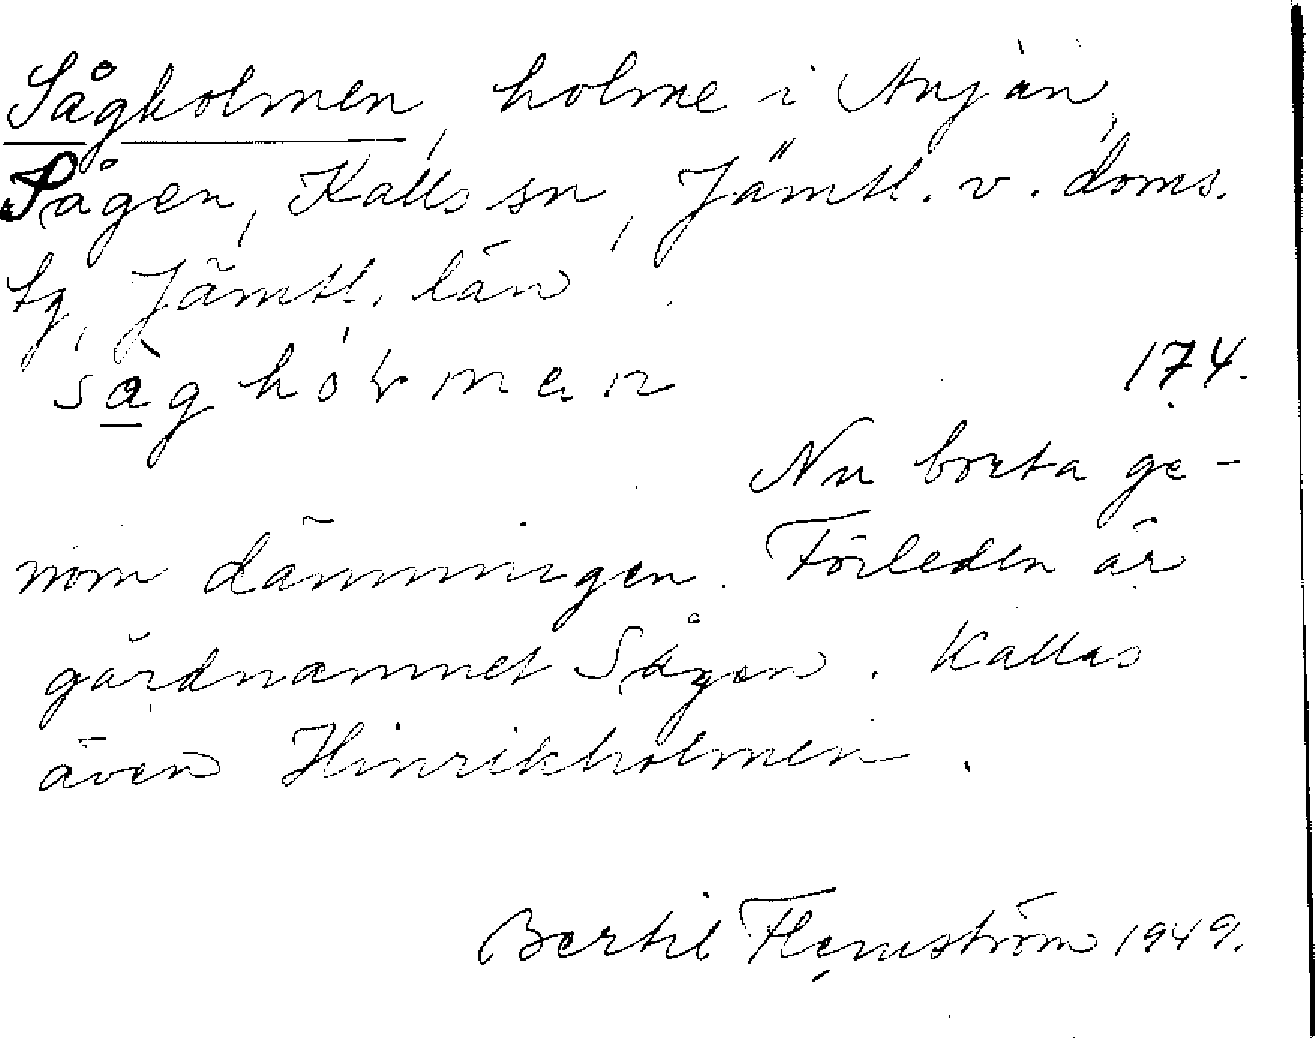 Sågholmen, holme i Anjan,
Sågen, Kalls sn, Jämtl. v. doms.
tg, Jämtl. län.
såghòɽmen 174.
Nu borta ge-
nom dämningen. Förleden är
gårdnamnet Sågen. Kallas
även Hinrikholmen.
Bertil Flemström 1949.